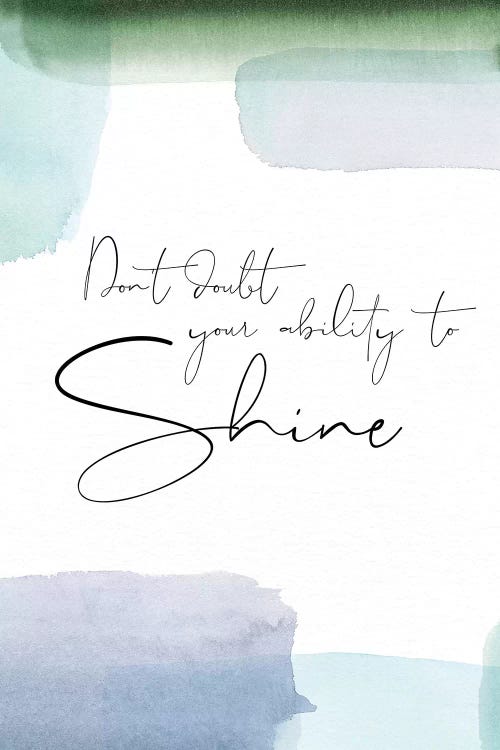 Don't doubt
your ability to
Shine